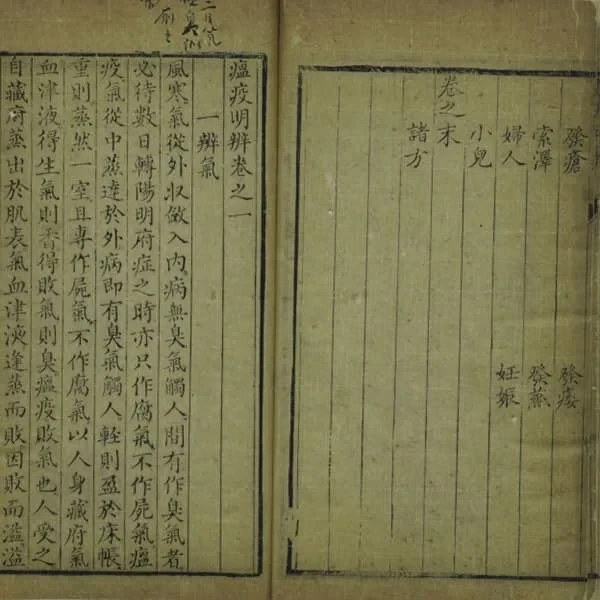 發瘡 發痿
索澤 發蒸
婦人 妊娠
小兒
卷之末
諸方
瘟疫明辨卷之一
一辨氣
風寒氣從外收斂入內病無臭氣觸人間有作臭氣者
必待數日轉陽明府症之時亦只作腐氣不作屍氣瘟
疫氣從中蒸達於外病即有臭氣觸人輕則盈於床帳
重則蒸然一室且專作屍氣不作腐氣以人身藏府氣
血津液得生氣則香得敗氣則臭瘟疫敗氣也人受之
自藏府蒸出於肌表氣血津液逢蒸而敗因敗而溢溢